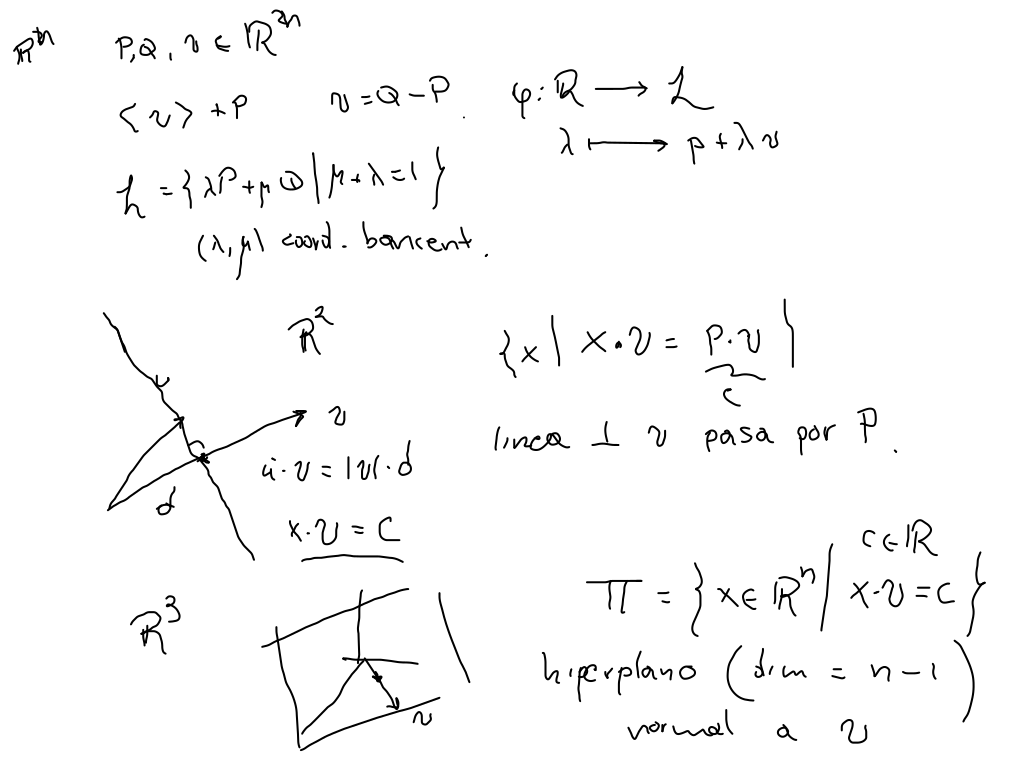 ℝⁿ P,Q, v ∈ ℝⁿ
<v> + P v = Q - P.
φ: ℝ → L
λ ↦ p + λv
L = {λP + μQ | μ + λ = 1}
(λ, μ) coord. baricent.
ℝ²
v
u·v = |v|·d
d
x·v = C
{x | x·v = P·v}
c
linea ⊥ v pasa por P.
ℝ³
v
c ∈ ℝ
Π = {x ∈ ℝⁿ | x·v = c}
hiperplano (dim = n-1)
normal a v